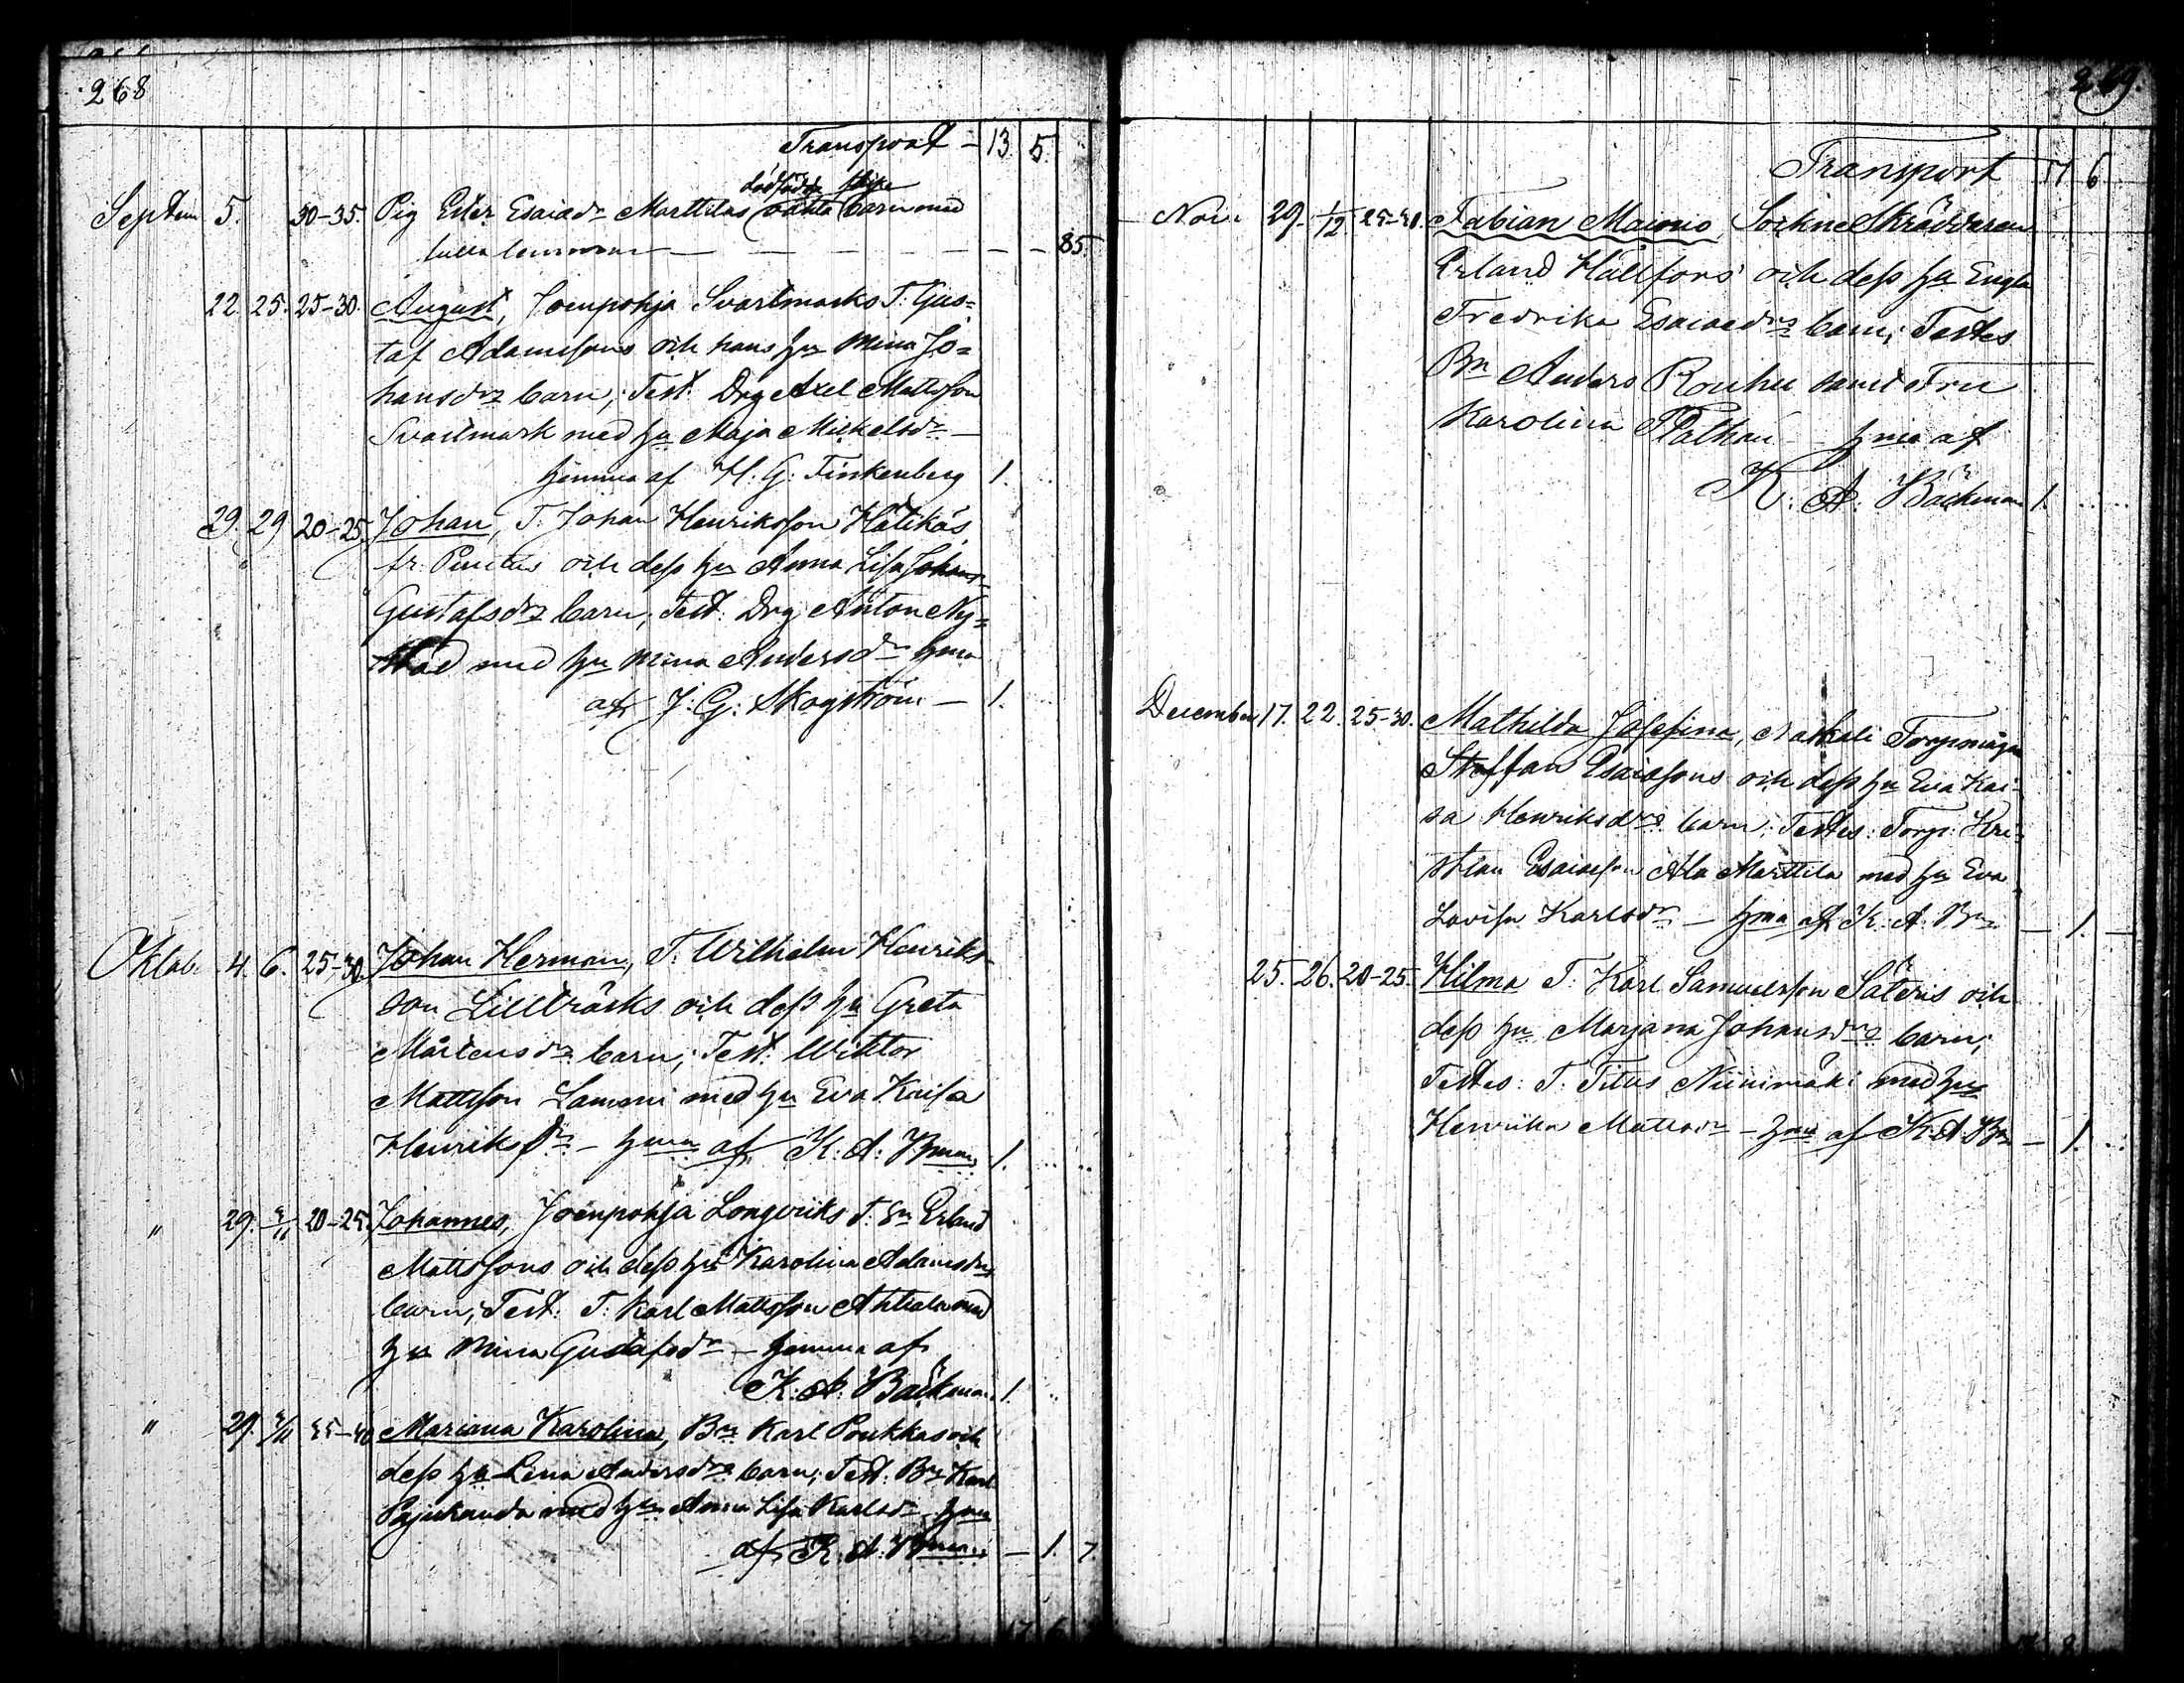 268
Transport - 13. 5.
dödfödda flicka
Septem 5. 30-35. Pig Ester Esaiasdr Marttilas oäkta barn med
fulla - - - - - 85.
22. 25. 25-30. August, Joenpohja Svartmarks T: Gus=
taf Adamssons och hans hu Mina Jo=
hansdrs barn; Test: Drg Axel Mattsson
Svartmark med hu Maja Mickelsdr -
hemma af H. G. Finkenberg 1.
29. 29 20-25. Johan, T. Johan Henriksson Hätikäs
fr. och dess hu Anna Lisa Johans
Gustafsdrs barn; Test: Drg Anton Ny=
stad med hu Mina Andersdr hma
af J. G. Skogström - 1.
Oktob. 4. 6. 25-30. Johan Herman, T. Wilhelm Henriks
son Lillträsks och dess hu Greta
Mårtensdrs barn; Test: Wiktor
Mattsson Lammi med hu Eva Kaisa
Henriksdr - hma af K. A. Bman 1.
" 29. 3/11 20-25. Johannes, Joenpohja Longviks T. Sn Erland
Mattssons och dess hu Karolina Adamsdrs
barn; Test: T. Karl Mattsson Ahtiala med
hu Mina Gustafsdr - hemma af
K. A. Bäckman 1.
" 29. 3/11 35-40 Mariana Karolina, Bn Karl Poukkas och
dess hu Lena Andersdrs barn; Test: Bn Karl
Pajukanda med hu Anna Lisa Karlsdr hma
af K. A. Bman - 1. 7.
17 6
269.
Transport 17 6
Nov. 29. 1/12. 25-30. Fabian Mainio Sockne Skräddaren
Erland Hällfors' och dess hu Engla
Fredrika Esaiaedrs barn; Testes
Bn Anders Rouhu samt Fru
Karolina Plathan - hma af
K. A. Bäckman 1.
December 17. 22. 25-30. Mathilda Josefina, Naskali Torpmågen
Staffan Esaiasons och dess hu Eva Kai-
sa Henriksdrs barn; Testes: Torp: Kri-
stian Esaiasson Ala Marttila med hu Eva
Lovisa Karlsdr - hma af K. A. Bn - 1. -
25. 26. 20-25. Hilma T. Karl Samuelsson Säteris och
dess hu Marjana Johansdrs barn;
Testes: T. Titus Niinimäki med hu
Henrika Mattsdr - hma af K. A. Bn - 1.